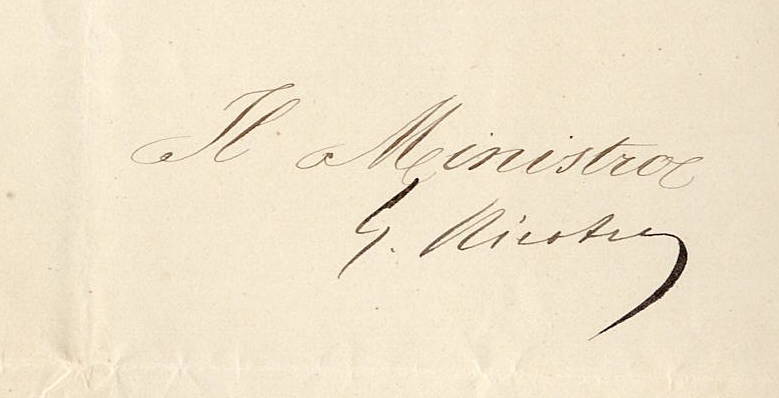 Il Ministro
G. Nicotera